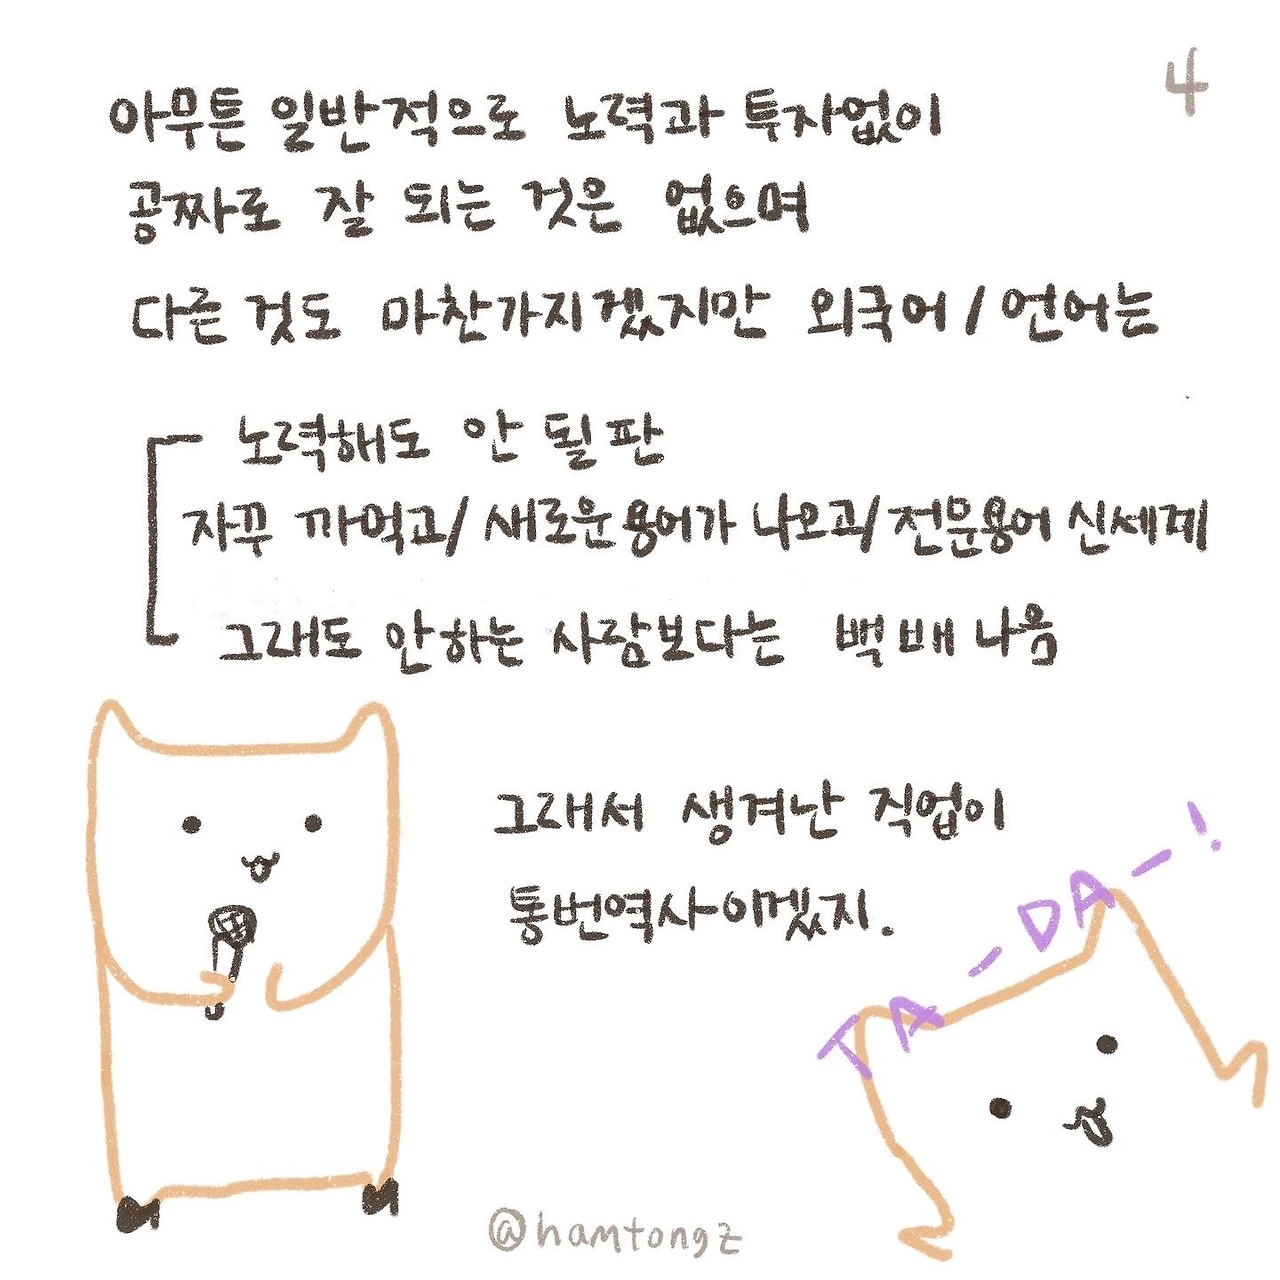 4
아무튼 일반적으로 노력과 투자없이
공짜로 잘 되는 것은 없으며
다른 것도 마찬가지겠지만 외국어/언어는
노력해도 안 될 판
자꾸 까먹고/새로운용어가 나오고/전문용어 신세계
그래도 안하는 사람보다는 백배 나음
그래서 생겨난 직업이
통번역사이겠지.
TA-DA-!
@hamtongz